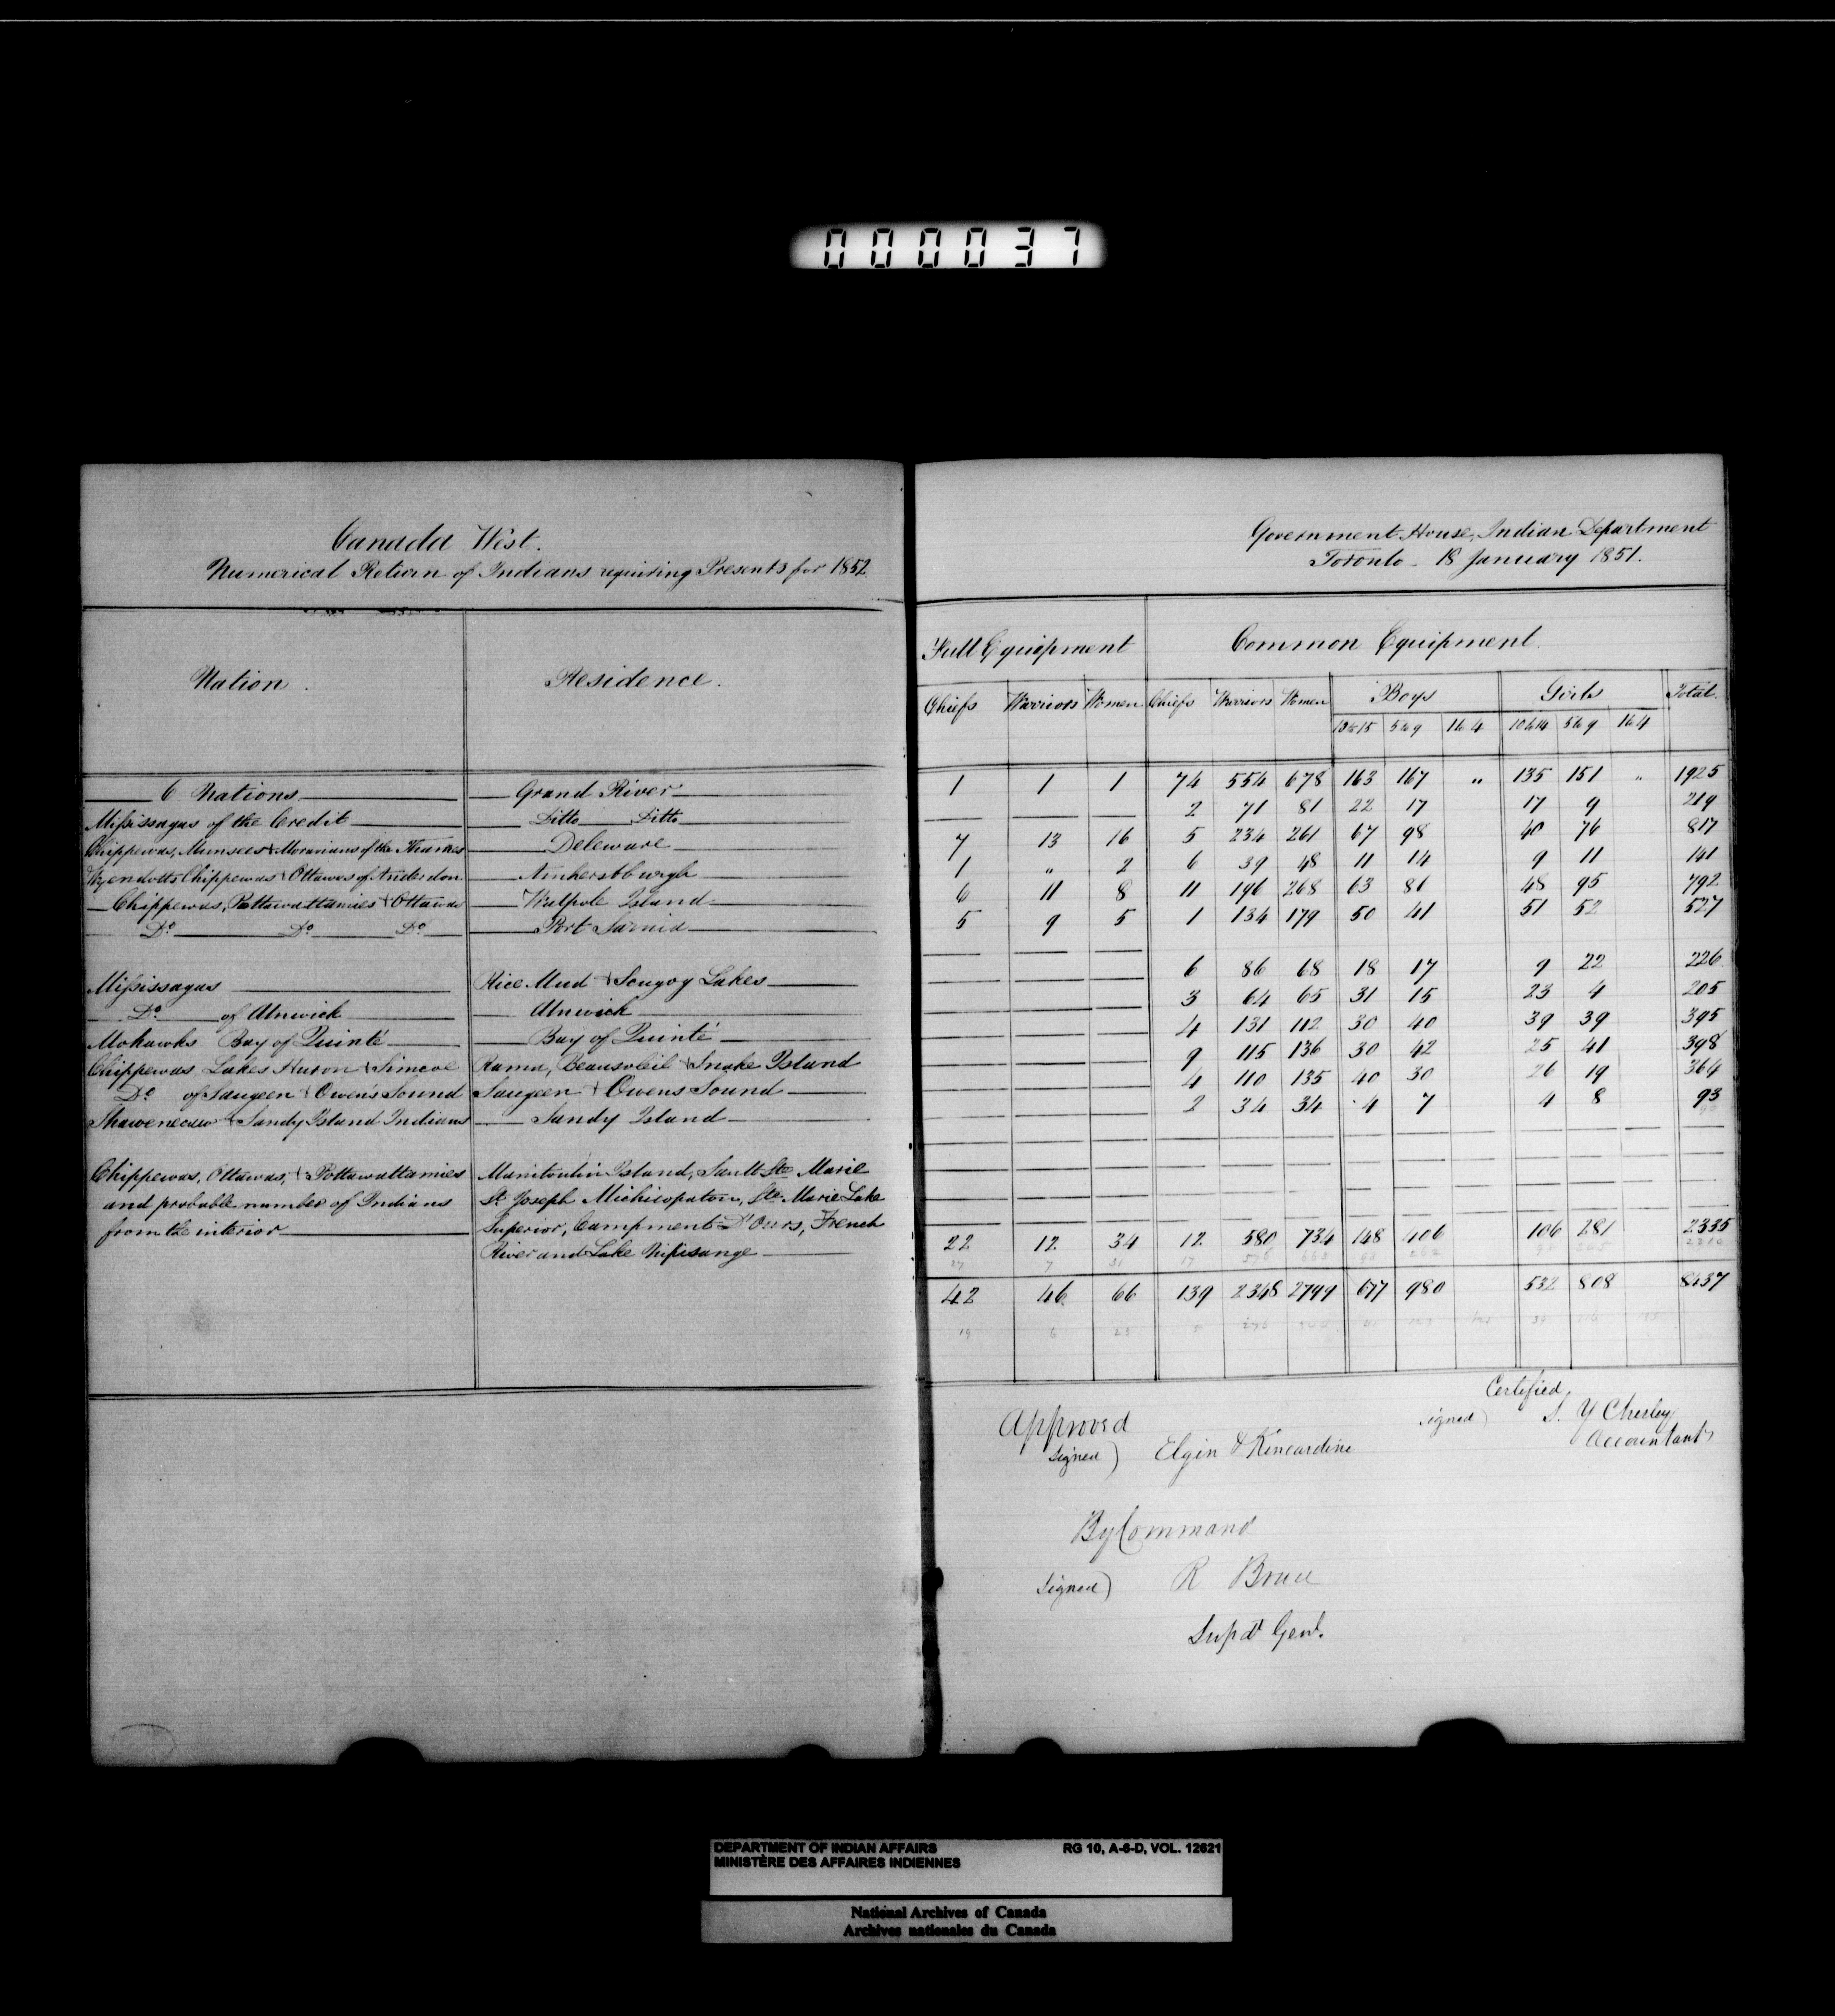 000037
Canada West.
Numerical Return of Indians requiring Presents for 1852
Government House, Indian Department
Toronto 18 January 1851.
Nation. Residence. Full Equipment Common Equipment.
Chiefs Warriors Women Chiefs Warriors Women Boys Girls Total.
10 to 15 5 to 9 1 to 4 10 to 14 5 to 9 1 to 4
6 Nations Grand River 1 1 1 74 554 678 163 167 " 135 151 " 1925
Missisagas of the Credit Ditto Ditto 2 71 81 22 17 17 9 219
Chippewas, Munsees & Moravians of the Thames Deleware 7 13 16 5 234 261 67 98 40 76 817
Wyendotts Chippewas & Ottawas of Anderdon Amherstburgh 1 " 2 6 39 48 11 14 9 11 141
Chippewas, Pottawattamies & Ottawas Walpole Island 6 11 8 11 196 268 63 86 48 95 792
Do Do Do Port Sarnia 5 9 5 1 134 179 50 41 51 52 527
Missisagas Rice Mud & Scugog Lakes 6 86 68 18 17 9 22 226
Do of Alnwick Alnwick 3 64 65 31 15 23 4 205
Mohawks Bay of Quinté Bay of Quinté 4 131 112 30 40 39 39 395
Chippewas Lakes Huron & Simcoe Rama, Beausoleil & Snake Island 9 115 136 30 42 25 41 398
Do of Saugeen & Owen's Sound Saugeen & Owens Sound 4 110 135 40 30 26 19 364
& Sandy Island Indians Sandy Island 2 34 34 4 7 4 8 93
Chippewas, Ottawas, & Pottawattamies Manitoulin Island, Sault Ste Marie
and probable number of Indians St Joseph Michicopaton, Ste Marie Lake
from the interior Superior, Campment D'Ours, French
River and Lake Nipisange 22 12 34 12 580 734 148 406 106 281 2335
42 46 66 139 2348 2799 677 980 532 808 8437
Certified,
signed) S. Y Chesley
Accountant
Approved
signed) Elgin & Kincardine
By Command
signed) R Bruce
Supdt Genl.
DEPARTMENT OF INDIAN AFFAIRS RG 10, A-6-D, VOL. 12621
MINISTÈRE DES AFFAIRES INDIENNES
National Archives of Canada
Archives nationales du Canada